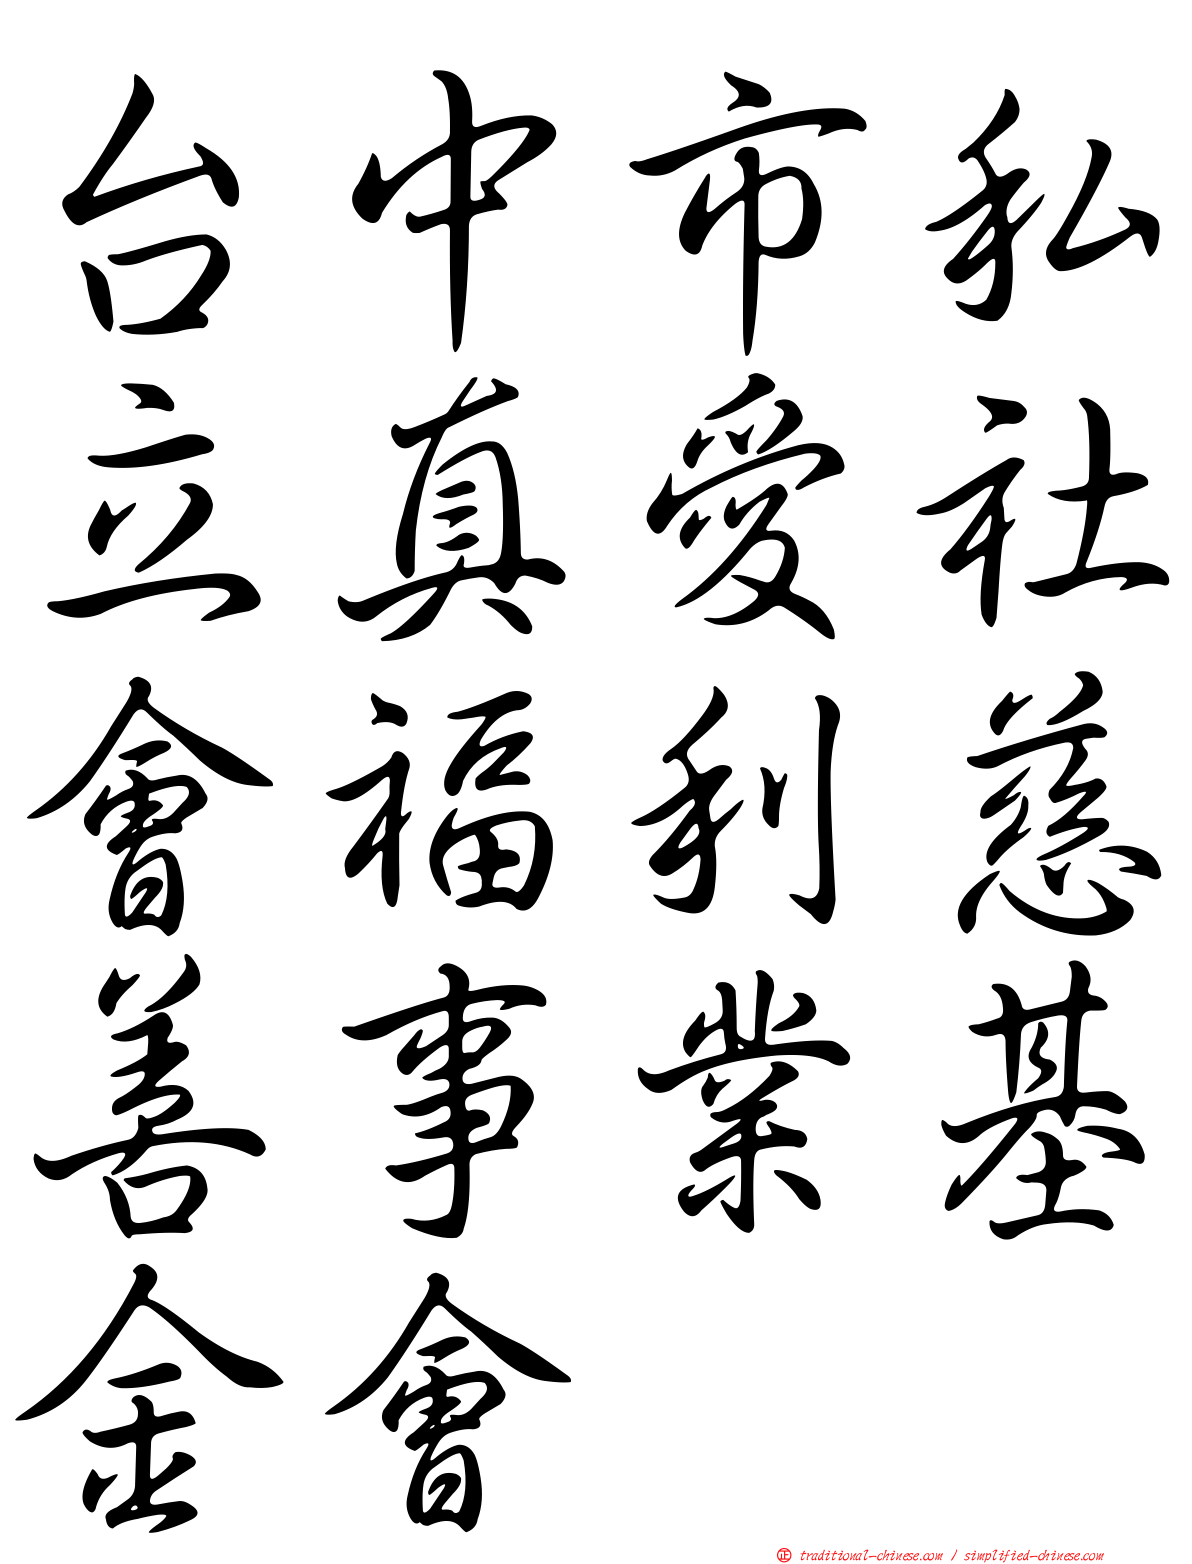 台中市私
立真愛社
會福利慈
善事業基
金會
正 traditional-chinese.com / simplified-chinese.com